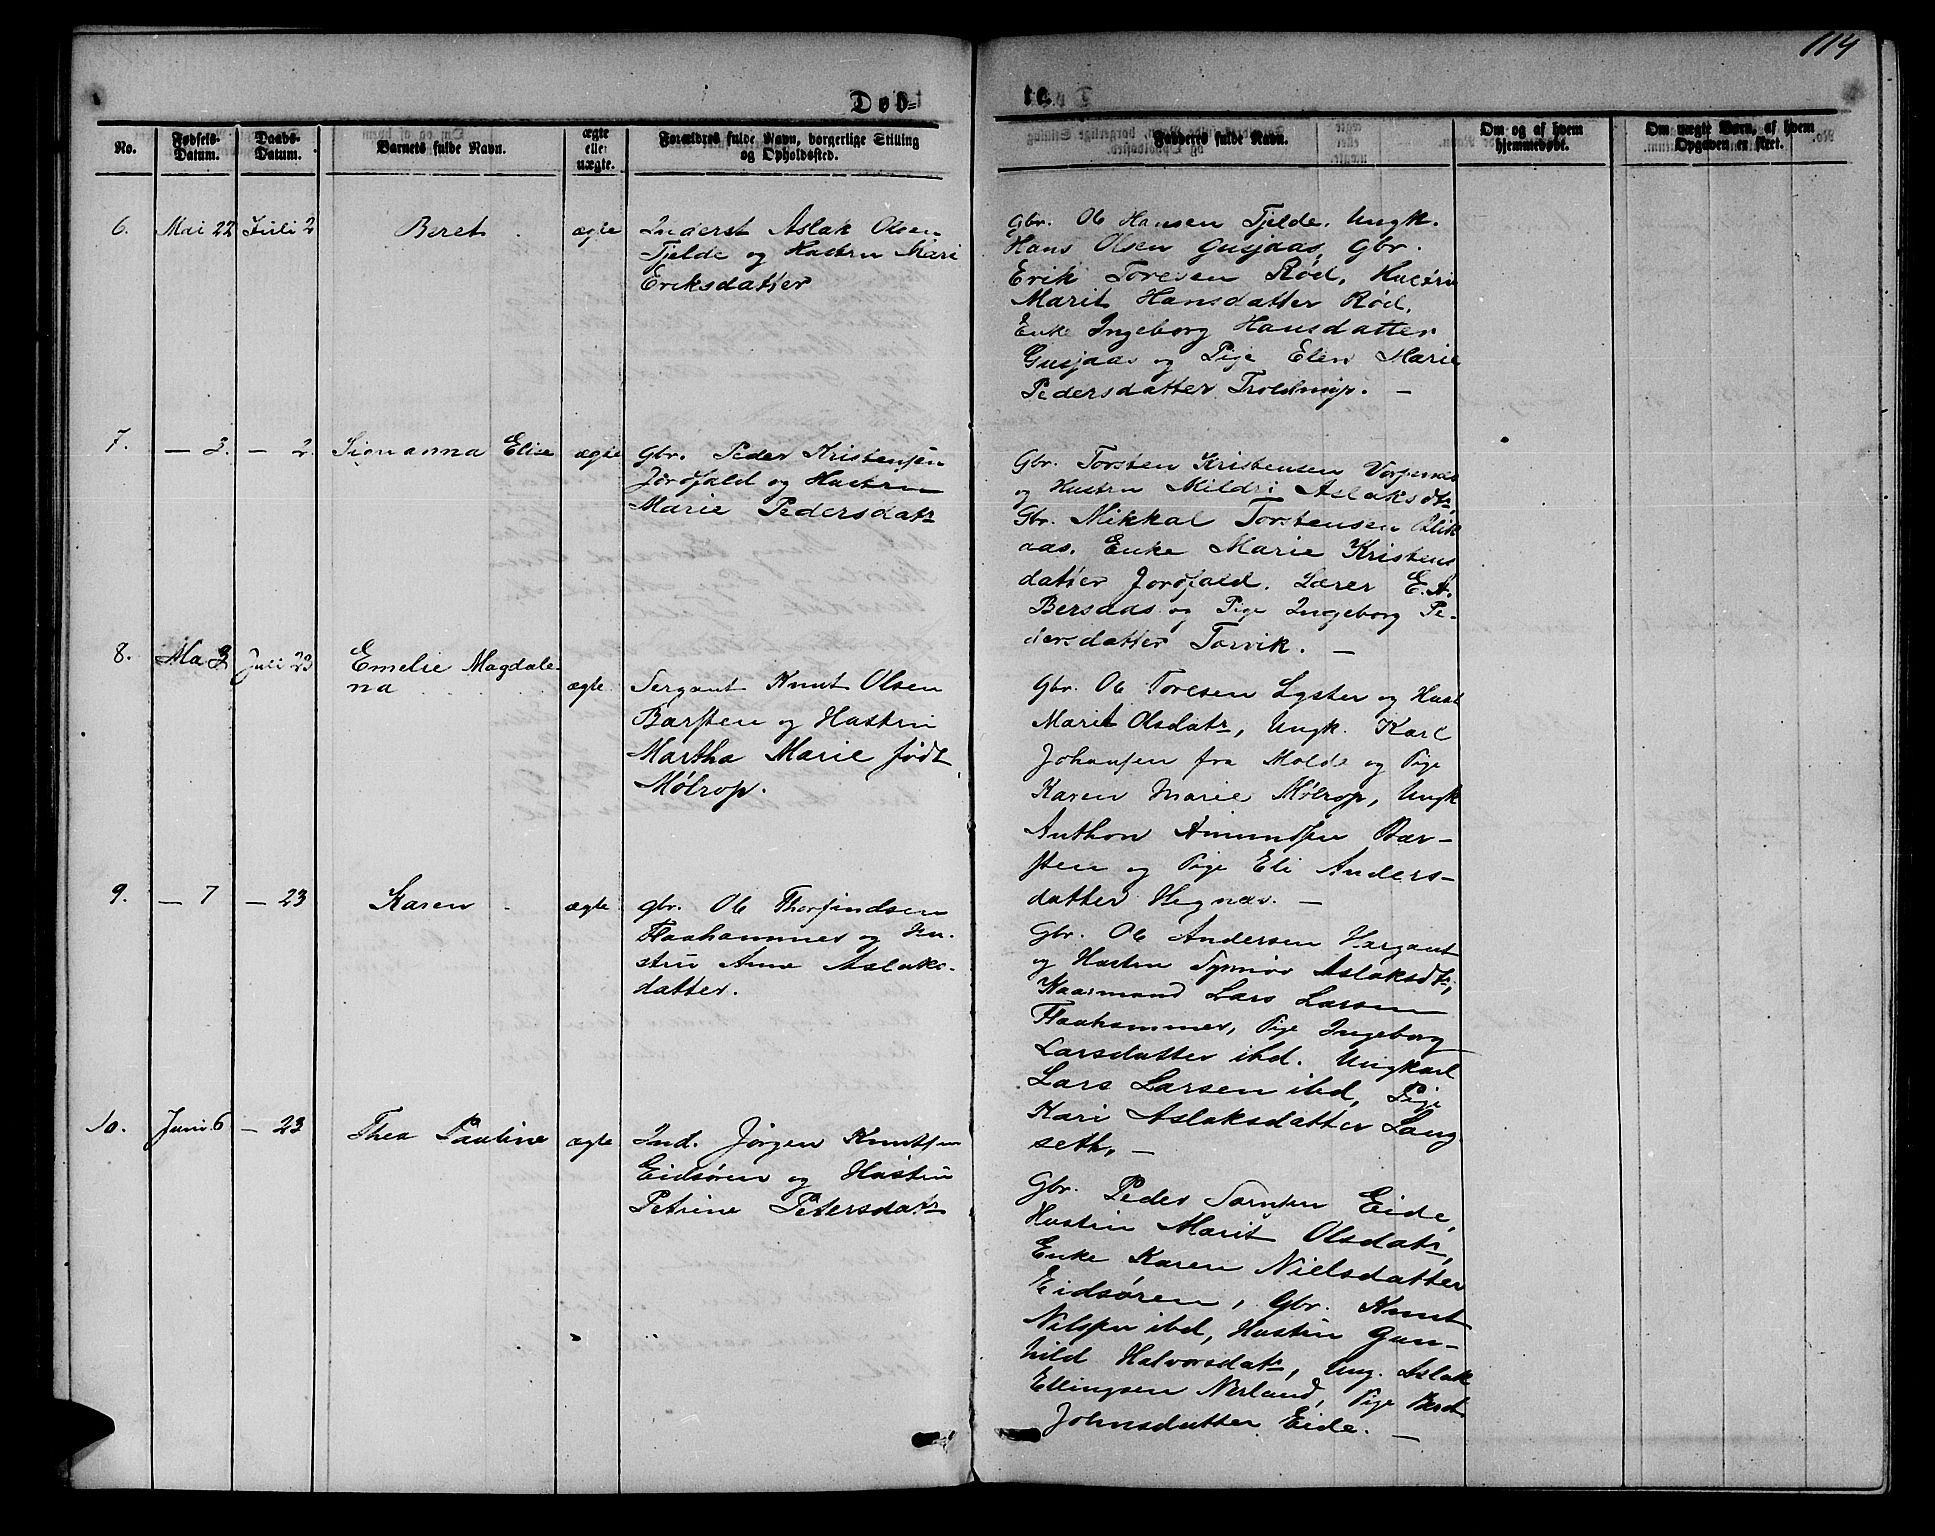 114
Døb=
te
No.
Fødsels-
Datum.
Daabs-
Datum.
Barnets fulde Navn.
ægte
eller
uægte.
Forældres fulde Navn, borgerlige Stilling
og Opholdssted.
Fadderes fulde Navn.
Om og af hvem
hjemmedøbt.
Om uægte Børn, af hvem
Opgaven er sket.
6. Mai 22 Juli 2 Beret ægte
Inderst Aslak Olsen
Tjelde og Hustru Mari
Eriksdatter
Gbr. Ole Hansen Tjelde. Ungk.
Hans Olsen Gusjaas, Gbr.
Erik Toresen Rød, Hustru
Marit Hansdatter Rød,
Enke Ingeborg Hansdatter
Gusjaas og Pige Elen Marie
Pedersdatter. —
7. — 3. — 2. Elise ægte
Gbr. Peder Kristensen
Jordfald og Hustru
Marie Pedersdatr
Gbr. Torsten Kristensen
og Hustru Mildri Aslaksdtr,
Gbr. Mikkal Torstensen Blik
aas. Enke Marie Kristens
datter Jordfald. Lærer E. A.
Bersaas og Pige Ingeborg Pe-
dersdatter Torvik. —
8. Mai 3 Juli 23 Emelie Magdale-
na ægte
Sergant Knut Olsen
Barsten og Hustru
Martha Marie født
Møtrop.
Gbr. Ole Toresen Lyster og Hust
Marit Olsdatr, Ungk. Karl
Johansen fra Molde og Pige
Karen Marie Møtrop, Ungk
Anthon Amundsen Bar-
sten og Pige Eli Anders-
datter Hegnas. —
9. — 7 — 23 Karen ægte
gbr. Ole Thorfindsen
Flaahammer og Hu-
stru Anne Aslaks-
datter.
Gbr. Ole Andersen Hargaut
og Hustru Synnøv Aslaksdtr,
Kaarmand Lars Larsen
Flaahammer, Pige Ingeborg
Larsdatter ibd. Ungkarl
Lars Larsen ibd, Pige
Kari Aslaksdatter Lang
seth, —
10. Juni 6 — 23 Thea Pauline ægte
Ind. Jørgen Knutsen
Eidsøren og Hustru
Petrine Petersdatr
Gbr. Peder Eide,
Hustru Marit Olsdatr,
Enke Karen Nielsdatter
Eidsøren, Gbr. Knut
Nilsen ibd, Hustru Gun-
hild Halvorsdatr, Ung. Aslak
Ellingsen Nerland, Pige Berit
Johnsdatter Eide. —